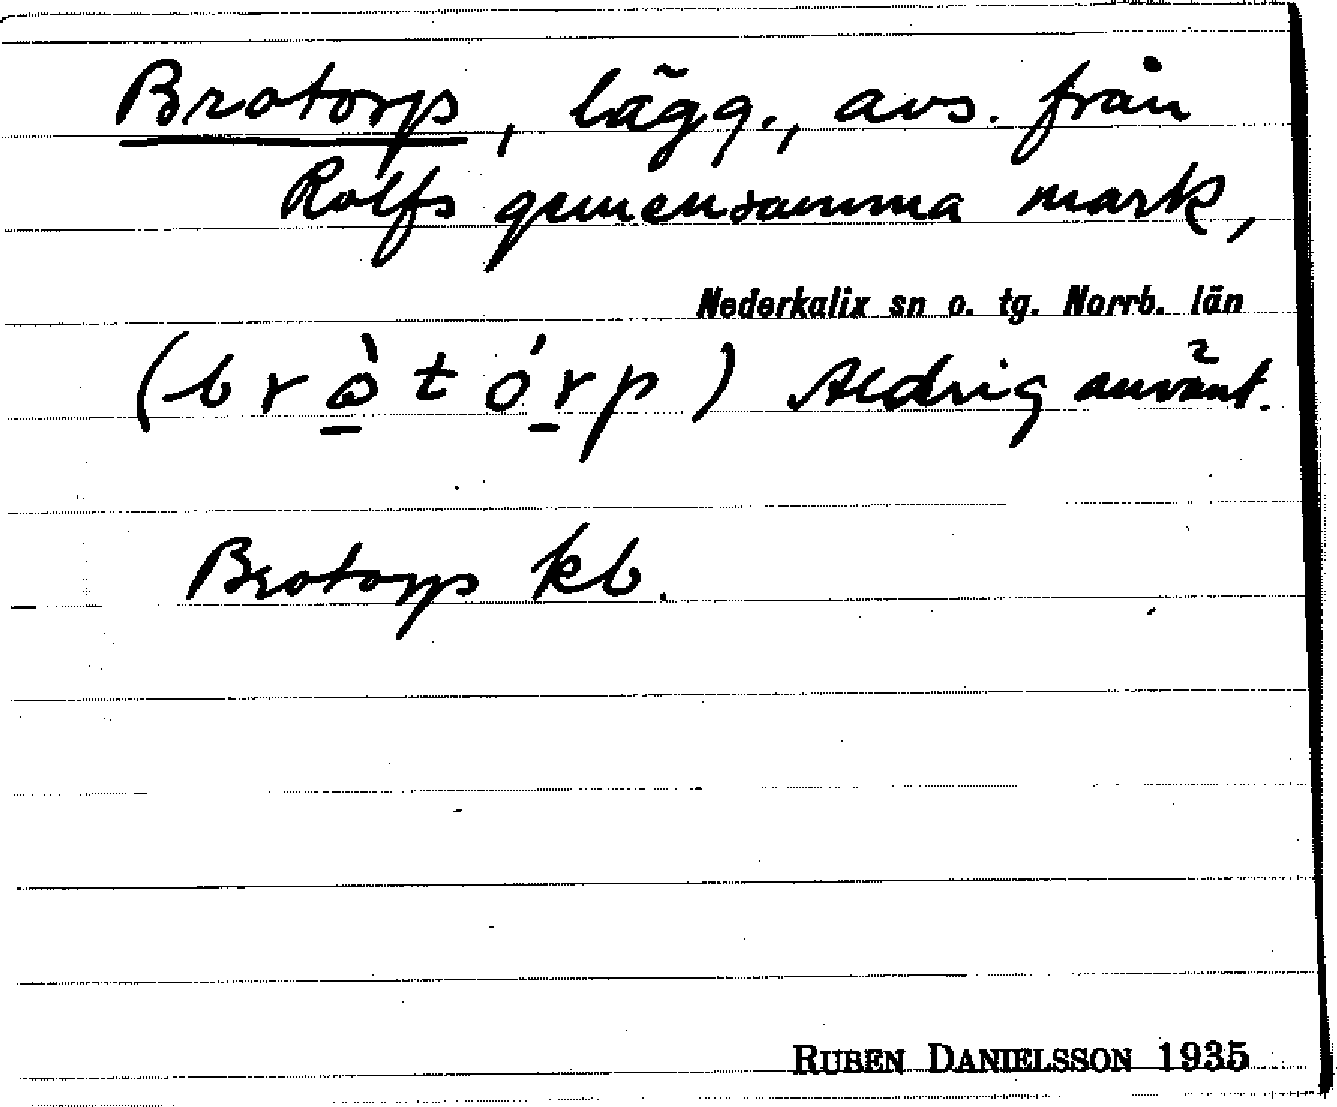 Brotorp, lägg., avs. från
Rolfs gemensamma mark,
Nederkalix sn o. tg. Norrb. län
(brò̲tó̲rp) Aldrig använt.
Brotorp kb.
RUBEN DANIELSSON 1935